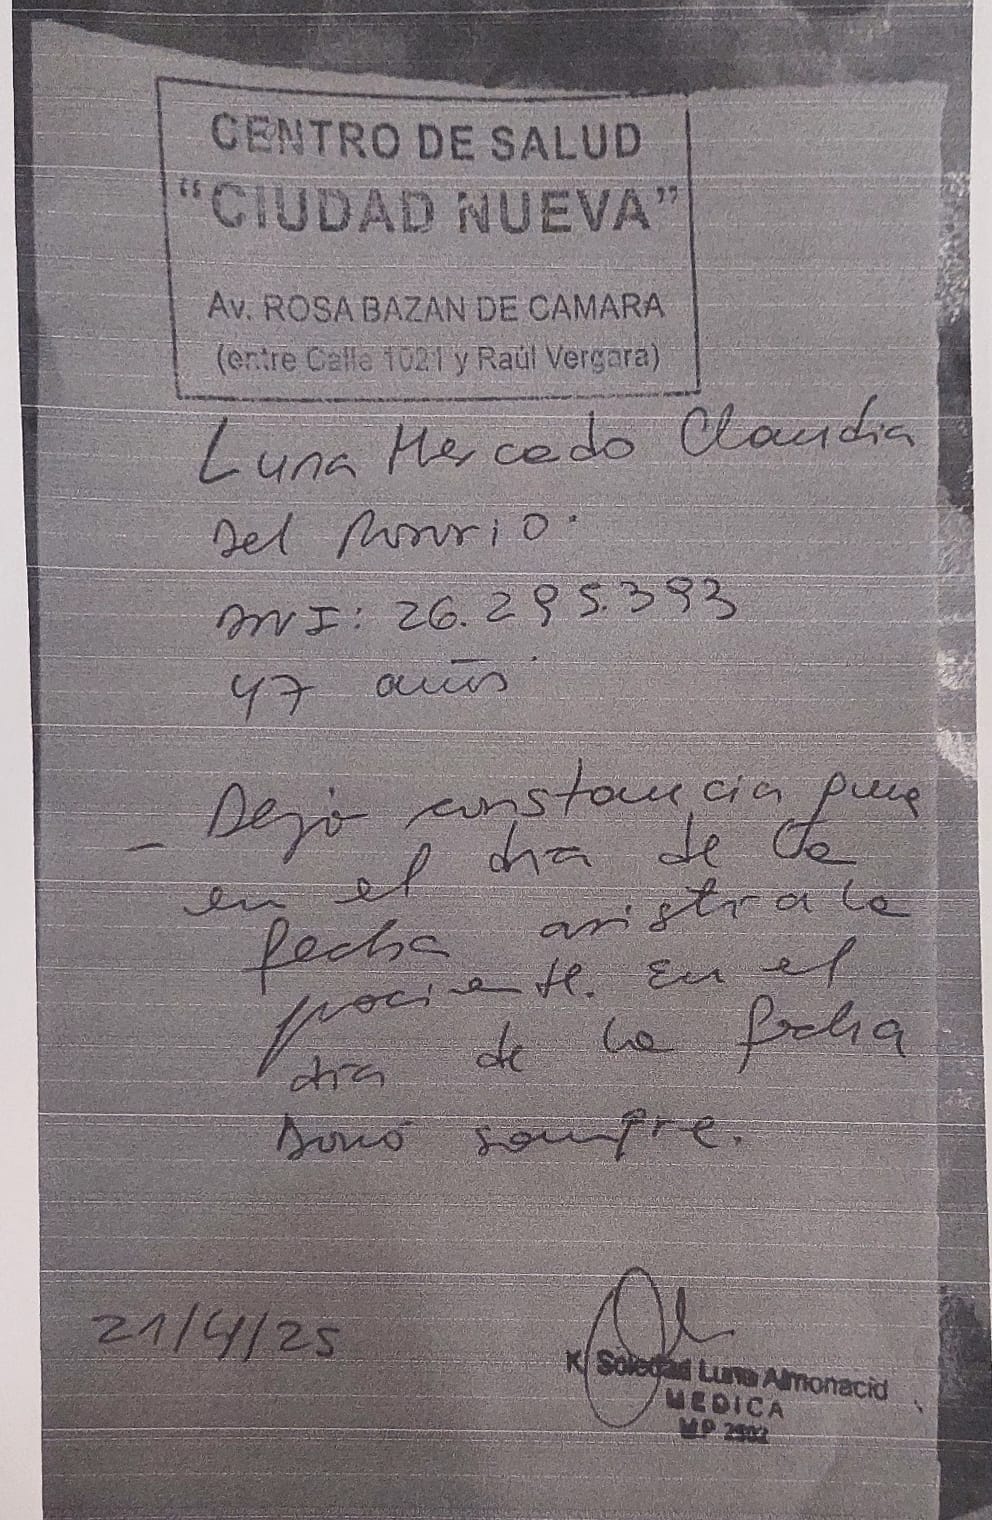 CENTRO DE SALUD
"CIUDAD NUEVA"
Av. ROSA BAZAN DE CAMARA
(entre Calle 1021 y Raúl Vergara)
Luna Mercado Claudia
Del Rosario.
DNI: 26.295.393
47 años.
- Dejo constancia que
en el dia de la
fecha asistí a la
paciente. En el
dia de la fecha
Donó sangre.
21/4/25
K. Soledad Luna Almonacid
MEDICA
MP